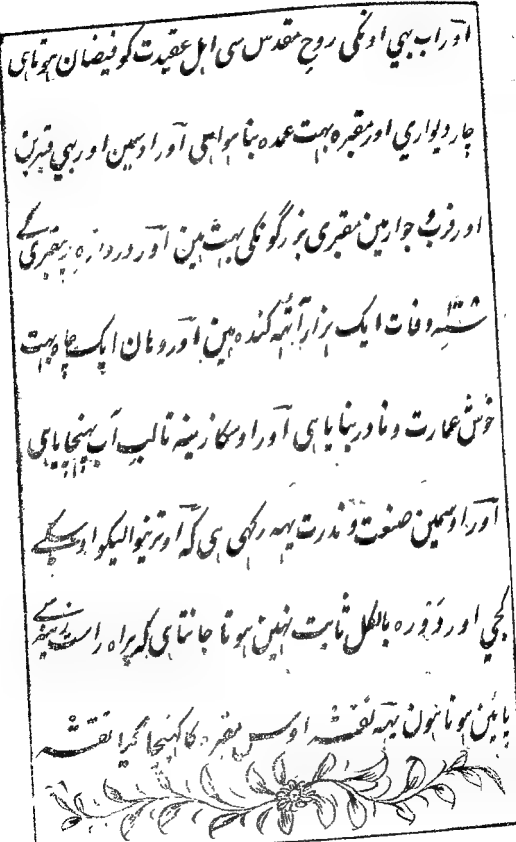 اور اب بهي اونکی روح مقدس سی اہل عقیدت کو فیضان ہوتاہی
چار دیواري اور مقبره بہت عمده بنا ہوا ہی اور اوسمین اور بهي قبرین
اور قرب و جوار مین مقبری بزرگونکی بہت ہین اور دروازه پر مقبری کے
سنہ وفات ایک ہزار آٹهہ کنده ہین اور وہان ایک چاه بہت
خوش عمارت و نادر بنایا ہی اور اوسکا زینہ تا لب آب پہنچایا ہی
اور اوسمین صنعت و ندرت یہہ رکهی ہی کہ اوترنیوالیکو اوسکے
کجي اور دوره بالکل ثابت نہین ہوتا جانتا ہی کہ براه راست زینہ سے
پایئن ہوتا ہون یہہ نقشہ اوس مقبره کا کهنچا گیا نقشہ